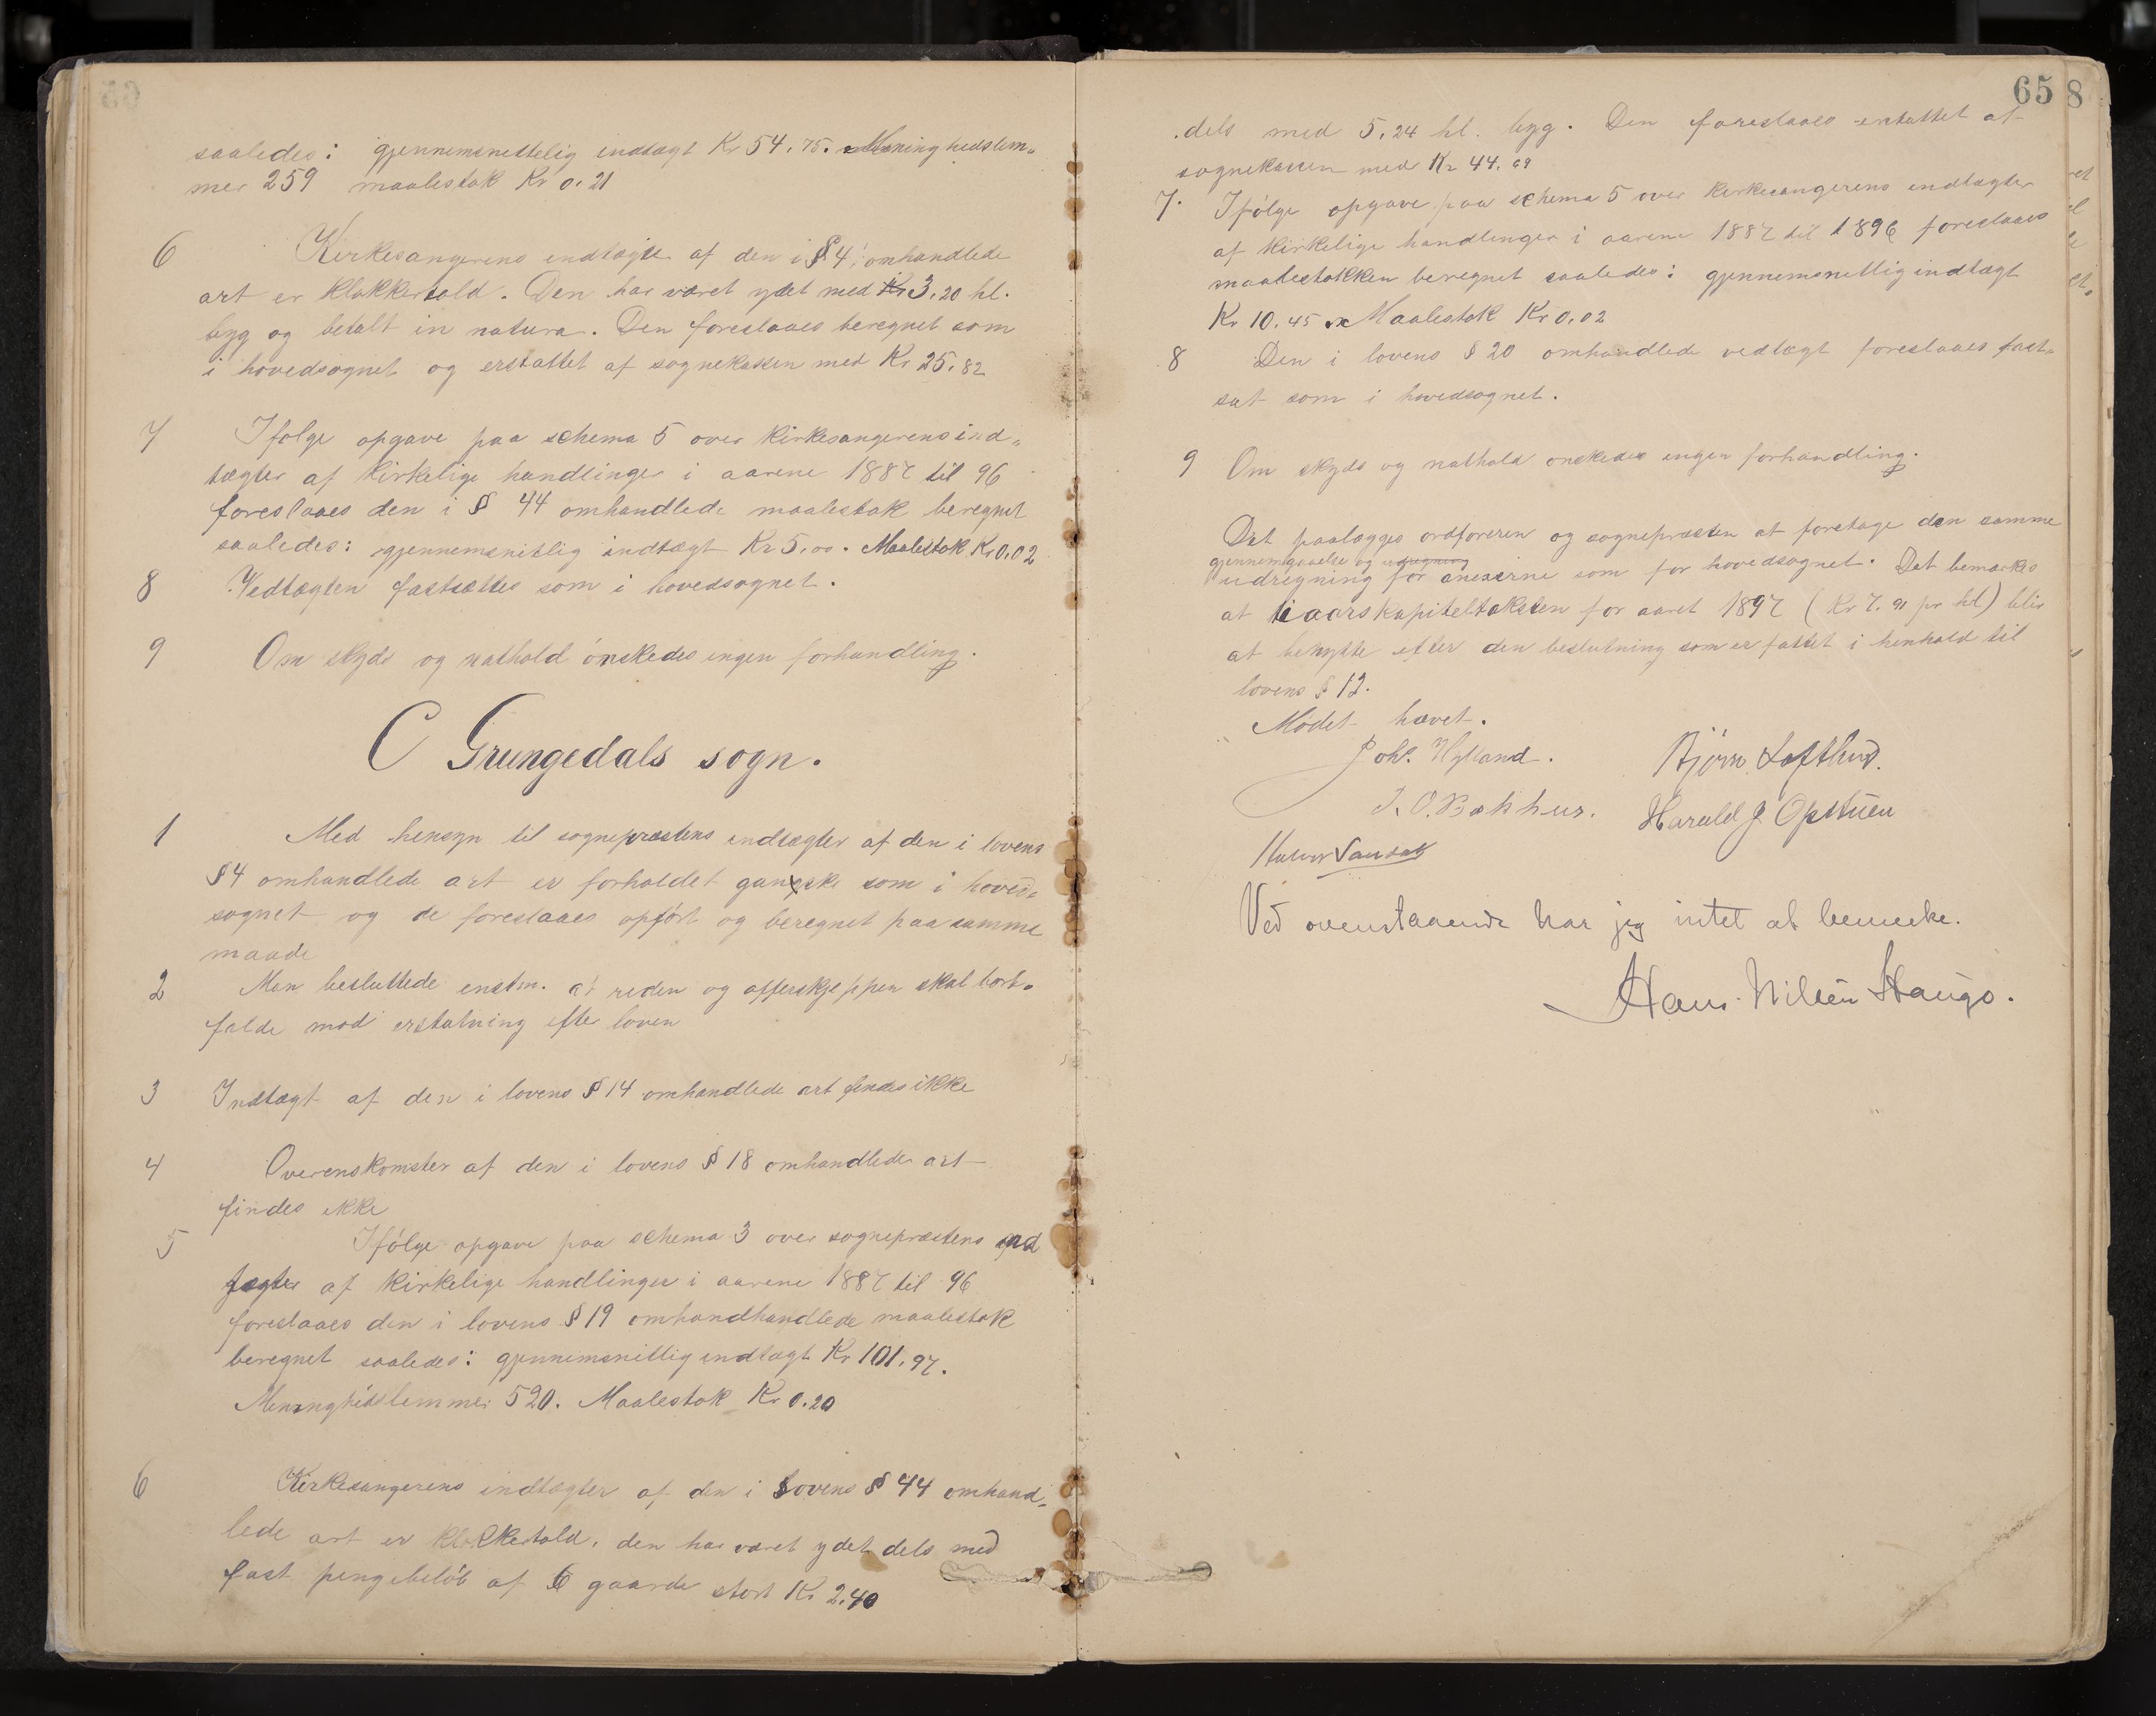 saaledes: gjennemsnettelig indtægt Kr 54.75. Meninghedslem„
mer 259 maalestok Kr 0.21
6 Kirkesangerens indtægter af den i § 4 omhandlede
art er klokkertold. Den har været ydet med 3.20 hl.
byg og betalt in natura. Den foreslaaes beregnet som
i hovedsognet og erstattet af sognekassen med Kr 25.82
7 Ifølge opgave paa schema 5 over kirkesangerens ind„
tægter af kirkelige handlinger i aarene 1887 til 96
foreslaaes den i § 44 omhandlede maalestok beregnet
saaledes: gjennemsnitlig indtægt Kr 5.00. Maalestok Kr 0.02
8 Vedtægten fastsættes som i hovedsognet.
9 Om skyds og nathold ønskedes ingen forhandling.
C Grungedals sogn.
1 Med hensyn til sognepræstens indtægter af den i lovens
§ 4 omhandlede art er forholdet ganske som i hoved„
sognet og de foreslaaes opført og beregnet paa samme
maade
2 Man besluttede enstm. at reden og offerskjeppen skal bort„
falde mod erstatning efter loven
3 Indtægt af den i lovens § 14 omhandlede art findes ikke
4 Overenskomster af den i lovens § 18 omhandlede art
findes ikke
5 Ifølge opgave paa schema 3 over sognepræstens ind
tægter af kirkelige handlinger i aarene 1887 til 96
foreslaaes den i lovens § 19 omhandhandlede maalestok
beregnet saaledes: gjennimsnitlig indtægt Kr 101.97.
Meninghedslemmer 520. Maalestok Kr 0.20
6 Kirkesangerens indtægter af den i Lovens § 44 omhand„
lede art er klokkertold, den har været ydet dels med
fast pengebeløb af 6 gaarde stort Kr 2.40
65
8
dels med 5.24 hl. byg. Den foreslaaes erstattet af
sognekassen med Kr 44.69
7. Ifølge opgave paa schema 5 over kirkesangerens indtægter
af kirkelige handlinger i aarene 1887 til 1896 foreslaaes
maalestokken beregnet saaledes: gjennemsnitlig indtægt
Kr 10.45 Maalestok Kr 0.02
8 Den i lovens § 20 omhandlede vedtægt foreslaaes fast„
sat som i hovedsognet.
9 Om skyds og nathold ønskedes ingen forhandling.
Det paalægges ordføreren og sognepræsten at foretage den samme
gjennemgaaelse og udregning
udregning for anexerne som for hovedsognet. Det bemærkes
at tiaars kapiteltaksten for aaret 1897 (Kr 7.91 pr hl) blir
at benytte efter den beslutning som er fattet i henhold til
lovens § 12.
Mødet hævet.
Joh. Hylland. Bjørn Lofthus.
T. O. Bakhus. Harald J Opstuen
Halvor
Ved ovenstaaende har jeg intet at bemerke.
Hans Nilsen Hauge.